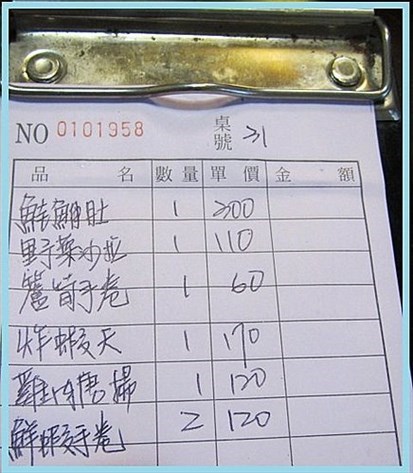 NO 0101958 桌號 31
品名 數量 單價 金額
鮭鮪肚 1 200
野菜沙拉 1 110
蘆筍手卷 1 60
炸蝦天 1 170
雞肉唐揚 1 120
鮮蝦手卷 2 120